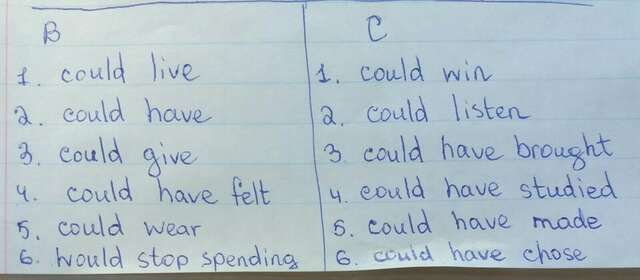 B
1. could live
2. could have
3. could give
4. could have felt
5. could wear
6. would stop spending
C
1. could win
2. could listen
3. could have brought
4. could have studied
5. could have made
6. could have chose